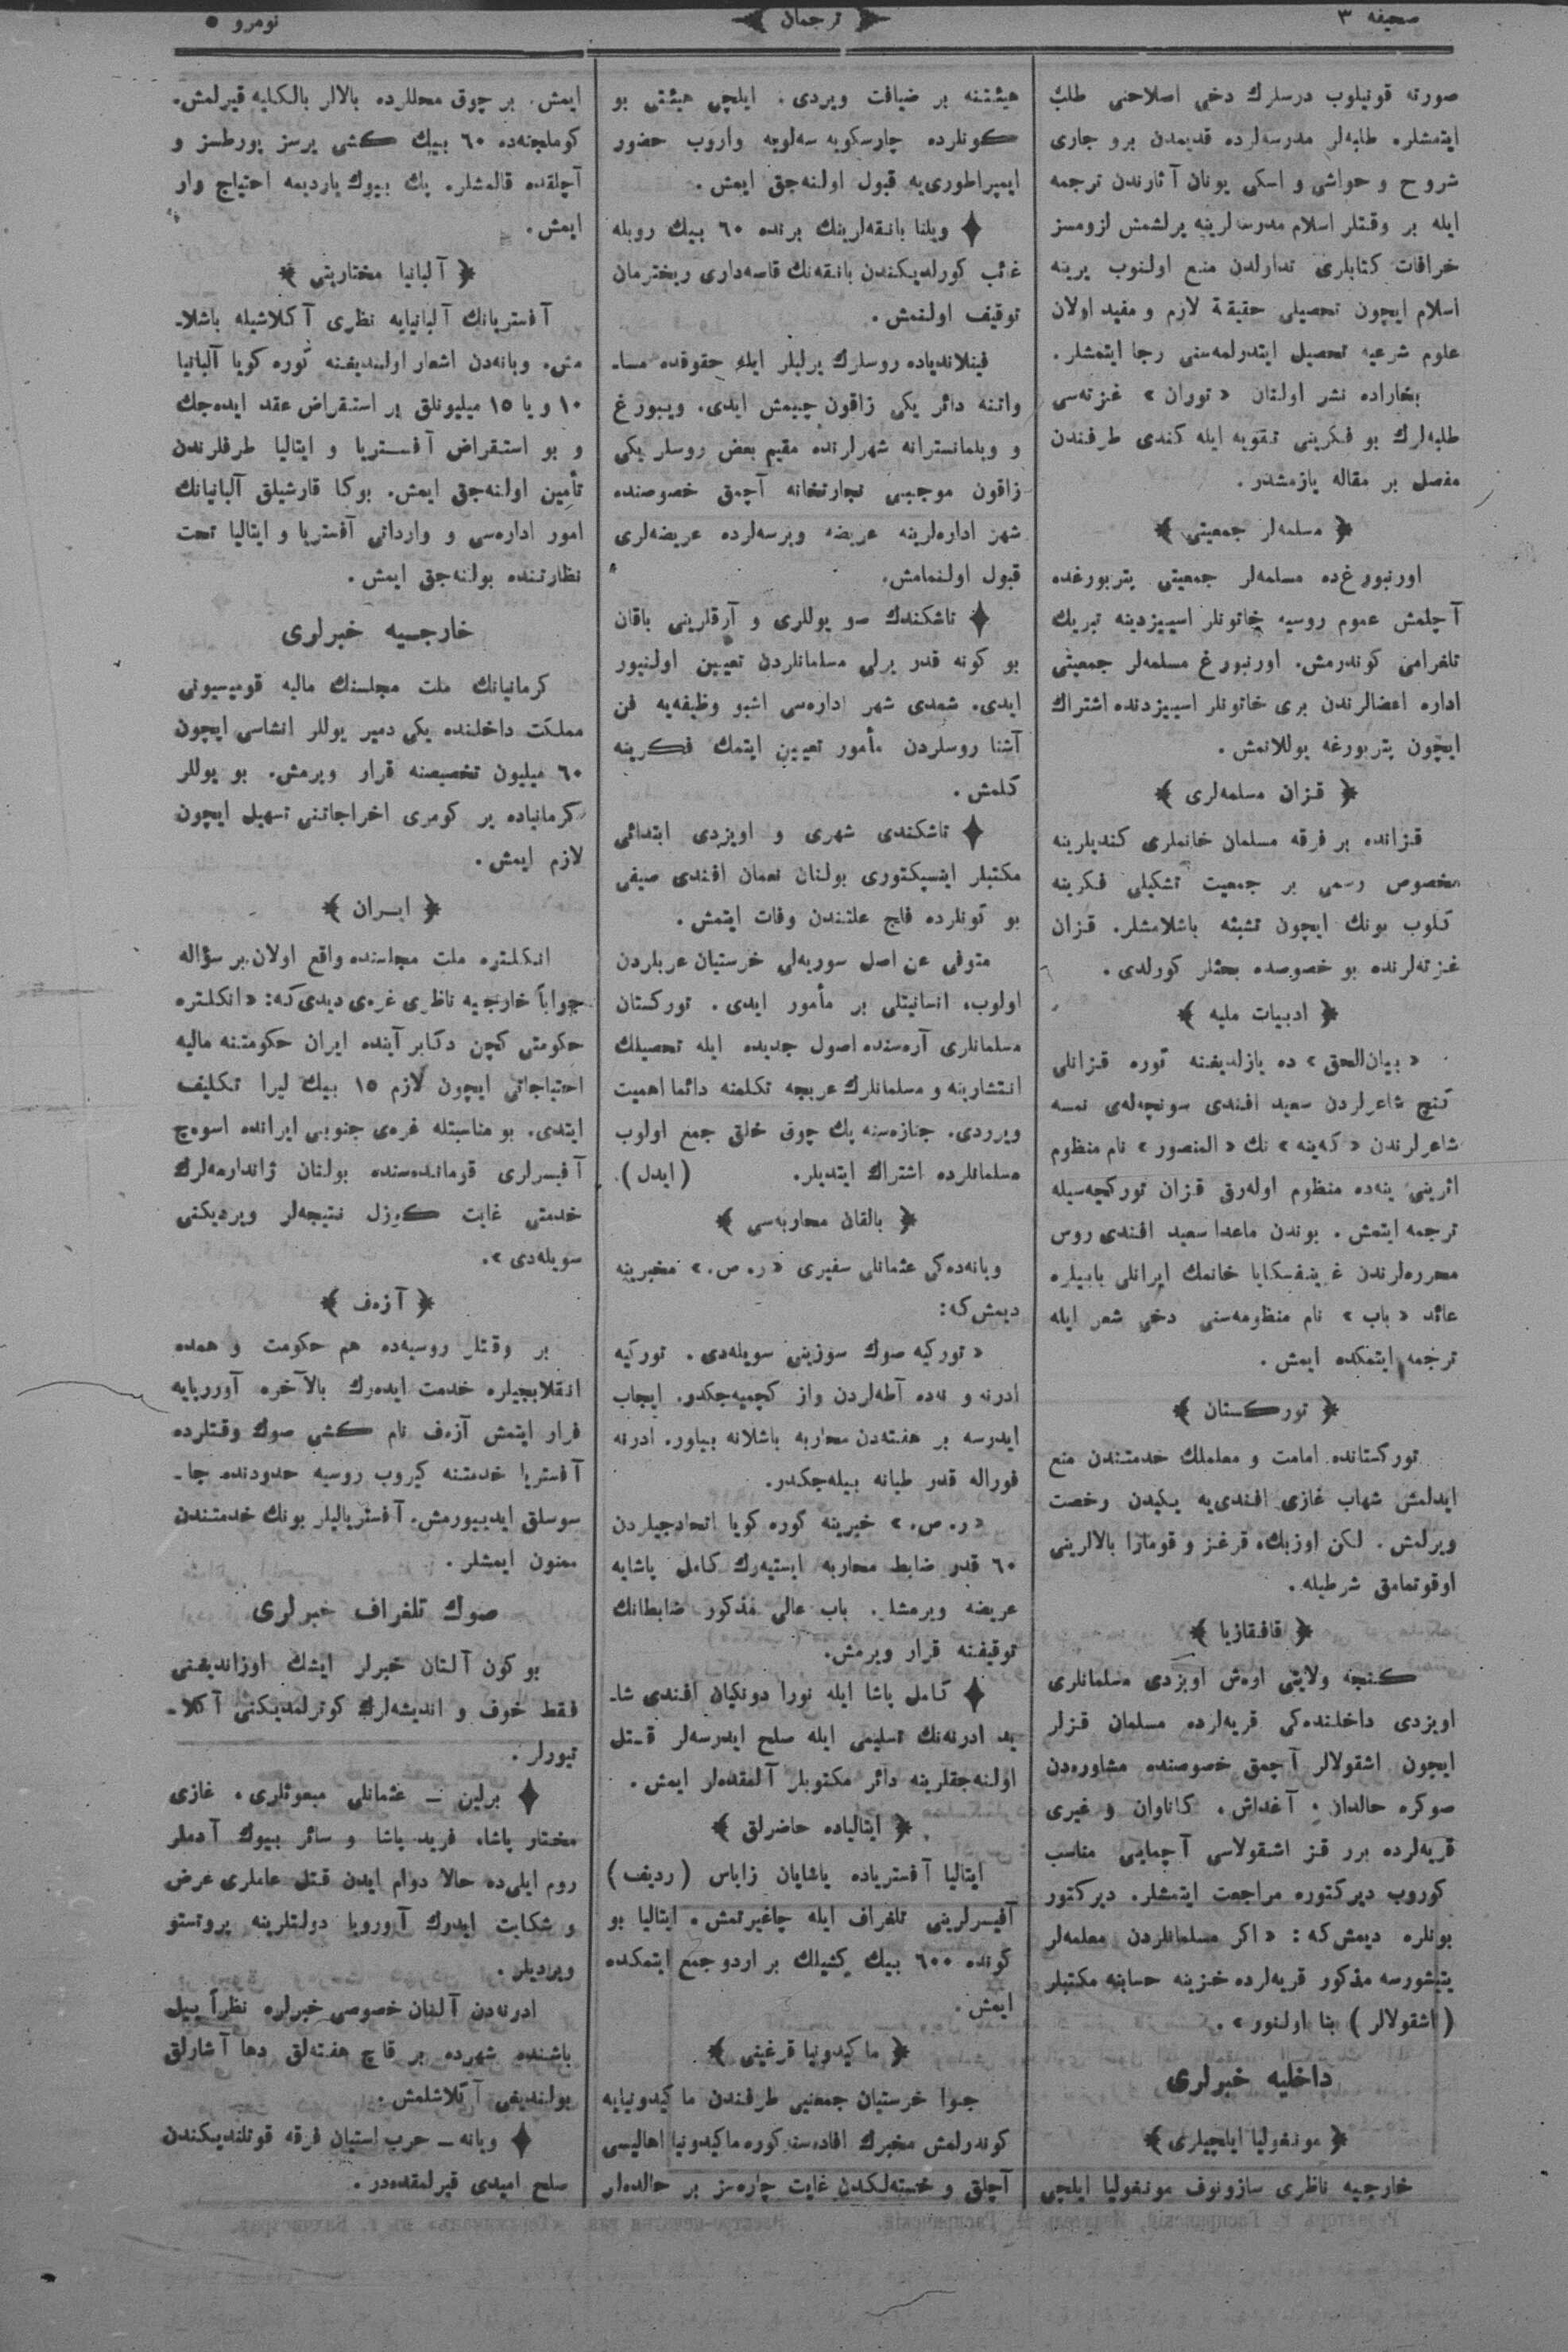 صحیفه ٣
ترجمان
نومرو ٥
صورته قونیلوب درسلرك دخی اصلاحنی طلب
ایتمشلر. طلبه‌لر مدرسه‌لرده قدیمدن برو جاری
شروح و حواشی و اسکی یونان آثارندن ترجمه
ایله بر وقتلر اسلام مدرسه‌لرینه یرلشمش لزومسز
خرافات کتابلری تداولدن منع اولنوب یرینه
اسلام ایچون تحصیلی حقیقة لازم و مفید اولان
علوم شرعیه تحصیل ایتدرلمه‌سنی رجا ایتمشلر.
بخاراده نشر اولنان «توران» غزته‌سی
طلبه‌لرك بو فکرینی تقویه ایله کندی طرفندن
مفصل بر مقاله یازمشدر.
﴿ مسلمه‌لر جمعیتی ﴾
اورنبورغ‌ده مسلمه‌لر جمعیتی پتربورغده
آچلمش عموم روسیه خاتونلر اسییزدینه تبریك
تلغرامی کوندرمش. اورنبورغ مسلمه‌لر جمعیتی
اداره اعضالرندن بری خاتونلر اسییزدنده اشتراك
ایچون پتربورغه یوللانمش.
﴿ قزان مسلمه‌لری ﴾
قزانده بر فرقه مسلمان خانملری کندیلرینه
مخصوص رسمی بر جمعیت تشکیلی فکرینه
کلوب بونك ایچون تشبثه باشلامشلر. قزان
غزته‌لرنده بو خصوصده بحثلر کورلدی.
﴿ ادبیات ملیه ﴾
«بیان‌الحق» ده یازلدیغنه کوره قزانلی
کنچ شاعرلردن سعید افندی سونچه‌له‌ی نمسه
شاعرلرندن «که‌ینه» نك «المنصور» نام منظوم
اثرینی ینه‌ده منظوم اوله‌رق قزان تورکچه‌سیله
ترجمه ایتمش. بوندن ماعدا سعید افندی روس
محرره‌لرندن غرینفسکایا خانمك ایرانلی بابیلره
عائد «باب» نام منظومه‌سنی دخی شعر ایله
ترجمه ایتمکده ایمش.
﴿ تورکستان ﴾
تورکستانده امامت و معلملك خدمتندن منع
ایدلمش شهاب غازی افندی‌یه یکیدن رخصت
ویرلمش. لکن اوزبك، قرغز و قومازا بالالرینی
اوقوتمامق شرطیله.
﴿ قافقازیا ﴾
کنجه ولایتی اوه‌ش اویزدی مسلمانلری
اویزدی داخلنده‌کی قریه‌لرده مسلمان قزلر
ایچون اشقولالر آچمق خصوصنده مشاوره‌دن
صوکره حالدان، آغداش، کاناوان و غیری
قریه‌لرده برر قز اشقولاسی آچمایی مناسب
کوروب دیرکتوره مراجعت ایتمشلر. دیرکتور
بونلره دیمش‌که: «اکر مسلمانلردن معلمه‌لر
یتیشورسه مذکور قریه‌لرده خزینه حسابنه مکتبلر
(اشقولالر) بنا اولنور».
داخلیه خبرلری
﴿ مونغولیا ایلچیلری ﴾
خارجیه ناظری سازونوف مونغولیا ایلچی
هیئتنه بر ضیافت ویردی. ایلچی هیئتی بو
کونلرده چارسکویه سه‌لویه واروب حضور
ایمپراطوری‌یه قبول اولنه‌جق ایمش.
ویلنا بانقه‌لرینك برنده ٦٠ بیك روبله
غائب کورلدیکندن بانقه‌نك قاسه‌داری ریخترمان
توقیف اولنمش.
فینلاندیاده روسلرك یرلیلر ایله حقوقده مسا-
واتنه دائر یکی زاقون چیمش ایدی. ویبورغ
و ویلمانسترانه شهرلرنده مقیم بعض روسلر یکی
زاقون موجبی تجارتخانه آچمق خصوصنده
شهر اداره‌لرینه عریضه ویرسه‌لرده عریضه‌لری
قبول اولنمامش.
تاشکندك صو یوللری و آرقلرینی باقان
بو کونه قدر یرلی مسلمانلردن تعیین اولنیور
ایدی. شمدی شهر اداره‌سی اشبو وظیفه‌یه فن
آشنا روسلردن مأمور تعیین ایتمك فکرینه
کلمش.
تاشکندی شهری و اویزدی ابتدائی
مکتبلر اینسپکتوری بولنان نعمان افندی صیفی
بو کونلرده فلج علتندن وفات ایتمش.
متوفی عن اصل سوریه‌لی خرستیان عربلردن
اولوب، انسانیتلی بر مأمور ایدی. تورکستان
مسلمانلری آره‌سنده اصول جدیده ایله تحصیلك
انتشارینه و مسلمانلرك عربچه تکلمنه دائما اهمیت
ویرردی. جنازه‌سنه پك چوق خلق جمع اولوب
مسلمانلرده اشتراك ایتدیلر. (ایدل).
﴿ بالقان محاربه‌سی ﴾
ویانه‌ده‌کی عثمانلی سفیری «ر. ص.» مخبرینه
دیمش‌که:
«تورکیه صوك سوزینی سویله‌دی. تورکیه
ادرنه و نه‌ده آطه‌لردن واز کچمیه‌جکدر. ایجاب
ایدرسه بر هفته‌دن محاربه باشلانه بیلور. ادرنه
فوراله قدر طیانه بیله‌جکدر.
«ر. ص.» خبرینه کوره کویا اتحادجیلردن
٦٠ قدر ضابط محاربه ایستیه‌رك کامل پاشایه
عریضه ویرمشلر. باب عالی مذکور ضابطانك
توقیفنه قرار ویرمش.
کامل پاشا ایله نورا دونکیان افندی شا-
ید ادرنه‌نك تسلیمی ایله صلح ایدرسه‌لر قتل
اولنه‌جقلرینه دائر مکتوبلر آلمقده‌لر ایمش.
﴿ ایتالیاده حاضرلق ﴾
ایتالیا آفستریاده یاشایان زاپاس (ردیف)
آفیسرلرینی تلغراف ایله چاغیرتمش. ایتالیا بو
کونده ٦٠٠ بیك کشیلك بر اردو جمع ایتمکده
ایمش.
﴿ ماکیدونیا قرغینی ﴾
جوا خرستیان جمعیتی طرفندن ماکیدونیایه
کوندرلمش مخبرك افاده‌سنه کوره ماکیدونیا اهالیسی
آچلق و خسته‌لکدن غایت چاره‌سز بر حالده‌لر
ایمش. بر چوق محللرده بالالر بالکلیه قیرلمش.
کوملجنه‌ده ٦٠ بیك کشی یرسز یورطسز و
آچلقده قالمشلر. پك بیوك یاردیمه احتیاج وار
ایمش.
﴿ آلبانیا مختاریتی ﴾
آفستریانك آلبانیایه نظری آکلاشیله باشلا-
مش. ویانه‌دن اشعار اولندیغنه کوره کویا آلبانیا
١٠ و یا ١٥ میلیونلق بر استقراض عقد ایده‌جك
و بو استقراض آفستریا و ایتالیا طرفلرندن
تأمین اولنه‌جق ایمش. بوکا قارشیلق آلبانیانك
امور اداره‌سی و وارداتی آفستریا و ایتالیا تحت
نظارتنده بولنه‌جق ایمش.
خارجیه خبرلری
کرمانیانك ملت مجلسنك مالیه قومیسیونی
مملکت داخلنده یکی دمیر یوللر انشاسی ایچون
٦٠ میلیون تخصیصنه قرار ویرمش. بو یوللر
کرمانیاده یر کومری اخراجاتنی تسهیل ایچون
لازم ایمش.
﴿ ایران ﴾
انکلتره ملت مجلسنده واقع اولان بر سؤاله
جواباً خارجیه ناظری غره‌ی دیدی‌که: «انکلتره
حکومتی کچن دکابر آینده ایران حکومتنه مالیه
احتیاجاتی ایچون لازم ١٥ بیك لیرا تکلیف
ایتدی. بو مناسبتله غره‌ی جنوبی ایرانده اسوه‌چ
آفیسرلری قومانده‌سنده بولنان ژاندارمه‌لرك
خدمتی غایت کوزل نتیجه‌لر ویردیکنی
سویله‌دی».
﴿ آزه‌ف ﴾
بر وقتلر روسیه‌ده هم حکومت و همده
انقلابجیلره خدمت ایده‌رك بالآخره آوروپایه
فرار ایتمش آزه‌ف نام کشی صوك وقتلرده
آفستریا خدمتنه کیروب روسیه حدودنده جا-
سوسلق ایدییورمش. آفستریالیلر بونك خدمتندن
ممنون ایمشلر.
صوك تلغراف خبرلری
بو کون آلنان خبرلر ایشك اوزاندیغنی
فقط خوف و اندیشه‌لرك کوترلمدیکنی آکلا-
تیورلر.
برلین — عثمانلی مبعوثلری، غازی
مختار پاشا، فرید پاشا و سائر بیوك آدملر
روم ایلی‌ده حالا دوام ایدن قتل عاملری عرض
و شکایت ایدوك آوروپا دولتلرینه پروتستو
ویردیلر.
ادرنه‌دن آلنان خصوصی خبرلره نظراً ییل
باشنده شهرده بر قاچ هفته‌لق دها آشارلق
بولندیغی آکلاشلمش.
ویانه — حرب استیان فرقه قوتلندیکندن
صلح امیدی قیرلمقده‌در.